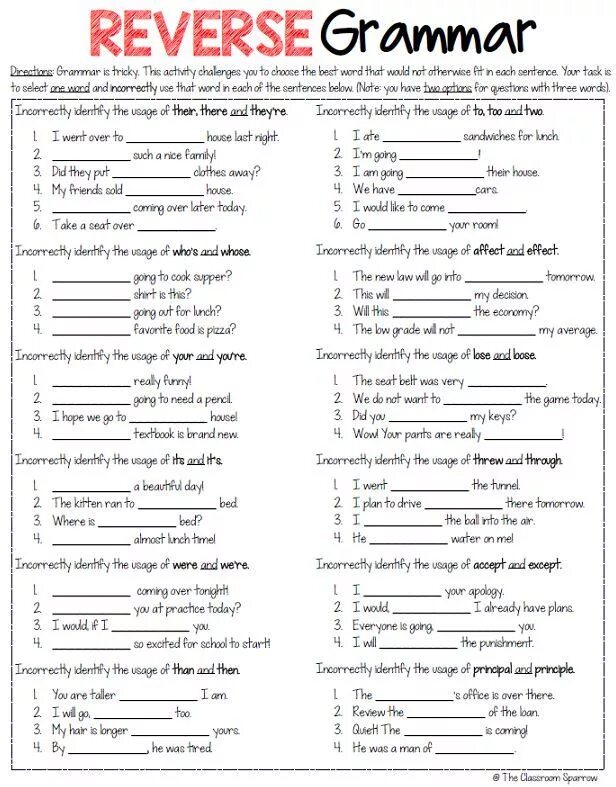 REVERSE Grammar
Directions: Grammar is tricky. This activity challenges you to choose the best word that would not otherwise fit in each sentence. Your task is
to select one word and incorrectly use that word in each of the sentences below. (Note: you have two options for questions with three words).
Incorrectly identify the usage of their, there and they're.
1. I went over to ____________ house last night.
2. ____________ such a nice family!
3. Did they put ____________ clothes away?
4. My friends sold ____________ house.
5. ____________ coming over later today.
6. Take a seat over ____________.
Incorrectly identify the usage of who's and whose.
1. ____________ going to cook supper?
2. ____________ shirt is this?
3. ____________ going out for lunch?
4. ____________ favorite food is pizza?
Incorrectly identify the usage of your and you're.
1. ____________ really funny!
2. ____________ going to need a pencil.
3. I hope we go to ____________ house!
4. ____________ textbook is brand new.
Incorrectly identify the usage of its and it's.
1. ____________ a beautiful day!
2. The kitten ran to ____________ bed.
3. Where is ____________ bed?
4. ____________ almost lunch time!
Incorrectly identify the usage of were and we're.
1. ____________ coming over tonight!
2. ____________ you at practice today?
3. I would, if I ____________ you.
4. ____________ so excited for school to start!
Incorrectly identify the usage of than and then.
1. You are taller ____________ I am.
2. I will go, ____________ too.
3. My hair is longer ____________ yours.
4. By ____________, he was tired.
Incorrectly identify the usage of to, too and two.
1. I ate ____________ sandwiches for lunch.
2. I'm going ____________!
3. I am going ____________ their house.
4. We have ____________cars.
5. I would like to come ____________.
6. Go ____________ your room!
Incorrectly identify the usage of affect and effect.
1. The new law will go into ____________ tomorrow.
2. This will ____________ my decision.
3. Will this ____________ the economy?
4. The low grade will not ____________ my average.
Incorrectly identify the usage of lose and loose.
1. The seat belt was very ____________.
2. We do not want to ____________ the game today.
3. Did you ____________ my keys?
4. Wow! Your pants are really ____________!
Incorrectly identify the usage of threw and through.
1. I went ____________ the tunnel.
2. I plan to drive ____________ there tomorrow.
3. I ____________ the ball into the air.
4. He ____________ water on me!
Incorrectly identify the usage of accept and except.
1. I ____________ your apology.
2. I would, ____________ I already have plans.
3. Everyone is going, ____________ you.
4. I will ____________ the punishment.
Incorrectly identify the usage of principal and principle.
1. The ____________'s office is over there.
2. Review the ____________ of the loan.
3. Quiet! The ____________ is coming!
4. He was a man of ____________.
@ The Classroom Sparrow